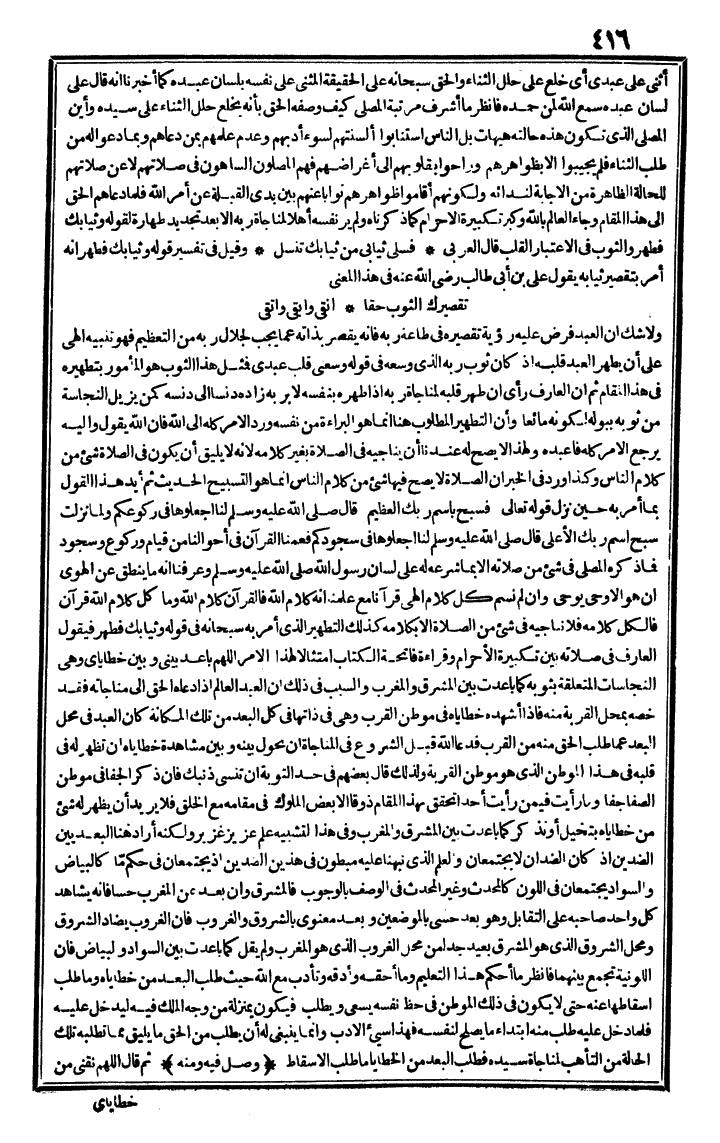 ٤١٦
أثنى على عبدى أى خلع على حلل الثناء والحق سبحانه على الحقيقة المثنى على نفسه بلسان عبده كما أخبرنا انه قال على
لسان عبده سمع الله لمن حمده فانظر ما أشرف مرتبة المصلى كيف وصفه الحق بأنه يخلع حلل الثناء على سيده وأين
المصلى الذى تكون هذه حالته هيهات بل الناس استنابوا ألسنتهم لسوء أدبهم وعدم علمهم بمن دعاهم وبما دعوا له من
طلب الثناء فلم يجيبوا الا بظواهرهم وراحوا بقلوبهم الى أغراضهم فهم المصلون الساهون فى صلاتهم لا عن صلاتهم
للحالة الظاهرة من الاجابة لندائه ولكونهم أقاموا ظواهرهم نوابا عنهم بين يدى القبلة عن أمر الله فلما دعاهم الحق
الى هذا المقام وجاء العالم بالله وكبر تكبيرة الاحرام كما ذكرناه ولم ير نفسه أهلا لمناجاة ربه الا بعد تجديد طهارة لقوله وثيابك
فطهر والثوب فى الاعتبار القلب قال العربى * فسلى ثيابى من ثيابك تنسل * وقيل فى تفسير قوله وثيابك فطهر انه
أمر بتقصير ثيابه يقول على بن أبى طالب رضى الله عنه فى هذا المعنى
تقصيرك الثوب حقا * انقى وابقى واتقى
ولا شك ان العبد فرض عليه رؤية تقصيره فى طاعة ربه فانه يقصر بذاته عما يجب لجلال ربه من التعظيم فهو تنبيه الهى
على أن يطهر العبد قلبه اذ كان ثوب ربه الذى وسعه فى قوله وسعنى قلب عبدى فمثل هذا الثوب هو المأمور بتطهيره
فى هذا المقام ثم ان العارف رأى ان طهر قلبه لمناجاة ربه اذا طهره بنفسه لا بربه زاده دنسا الى دنسه كمن يزيل النجاسة
من ثوبه ببوله لكونه مائعا وأن التطهير المطلوب هنا انما هو البراءة من نفسه ورد الامر كله الى الله فان الله يقول واليه
يرجع الامر كله فاعبده ولهذا لا يصح له عندنا أن يناجيه فى الصلاة بغير كلامه لانه لا يليق أن يكون فى الصلاة شئ من
كلام الناس وكذا ورد فى الخبر ان الصلاة لا يصح فيها شئ من كلام الناس انما هو التسبيح الحديث ثم أيد هذا القول
بما أمر به حين نزل قوله تعالى فسبح باسم ربك العظيم قال صلى الله عليه وسلم لنا اجعلوها فى ركوعكم ولما نزلت
سبح اسم ربك الأعلى قال صلى الله عليه وسلم لنا اجعلوها فى سجودكم فعمنا القرآن فى أحوالنا من قيام وركوع وسجود
فما ذكره المصلى فى شئ من صلاته الا بما شرعه له على لسان رسول الله صلى الله عليه وسلم وعرفنا انه ما ينطق عن الهوى
ان هو الا وحى يوحى وان لم نسم كل كلام الهى قرآنا مع علمنا انه كلام الله فالقرآن كلام الله وما كل كلام الله قرآن
فالكل كلامه فلا نناجيه فى شئ من الصلاة الا بكلامه كذلك التطهير الذى أمر به سبحانه فى قوله وثيابك فطهر فيقول
العارف فى صلاته بين تكبيرة الأحرام وقراءة فاتحة الكتاب امتثالا لهذا الامر اللهم باعد بينى وبين خطاياى وهى
النجاسات المتعلقة بثوبه كما باعدت بين المشرق والمغرب والسبب فى ذلك ان العبد العالم اذا دعاه الحق الى مناجاته فقد
خصه بمحل القربة منه فاذا أشهده خطاياه فى موطن القرب وهى فى ذاتها فى كل البعد من تلك المكانة كان العبد فى محل
البعد عما طلب الحق منه من القرب فدعا الله قبل الشروع فى المناجاة ان يحول بينه وبين مشاهدة خطاياه ان تظهر له فى
قلبه فى هذا الموطن الذى هو موطن القربة ولذلك قال بعضهم فى حد التوبة ان تنسى ذنبك فان ذكر الجفا فى موطن
الصفا جفا وما رأيت فيمن رأيت أحدا تحقق بهذا المقام ذوقا الا بعض الملوك فى مقامه مع الخلق فلا يريد أن يظهر له شئ
من خطاياه بتخيل أو تذكر كما باعدت بين المشرق والمغرب وفى هذا التشبيه علم عزيز غزير ولكنه أراد هنا البعد بين
الضدين اذ كان الضدان لا يجتمعان والعلم الذى نبهنا عليه مبطون فى هذين الضدين اذ يجتمعان فى حكم مّا كالبياض
والسواد يجتمعان فى اللون كالمحدث وغير المحدث فى الوصف بالوجوب فالمشرق وان بعد عن المغرب حسا فانه يشاهد
كل واحد صاحبه على التقابل وهو بعد حسى بالموضعين وبعد معنوى بالشروق والغروب فان الغروب يضاد الشروق
ومحل الشروق الذى هو المشرق بعيد جدا من محل الغروب الذى هو المغرب ولم يقل كما باعدت بين السواد والبياض فان
اللونية تجمع بينهما فانظر ما أحكم هذا التعليم وما أحقه وأدقه وتأدب مع الله حيث طلب البعد من خطاياه وما طلب
اسقاطها عنه حتى لا يكون فى ذلك الموطن فى حظ نفسه يسعى ويطلب فيكون بمنزلة من وجه الملك فيه ليدخل عليه
فلما دخل عليه طلب منه ابتداء ما يصلح لنفسه فهذا سيئ الادب وانما ينبغى له أن يطلب من الحق ما يليق بما تطلبه تلك
الحالة من التأهب لمناجاة سيده فطلب البعد من الخطايا ما طلب الاسقاط ﴿وصل فيه ومنه﴾ ثم قال اللهم نقنى من
خطاياى